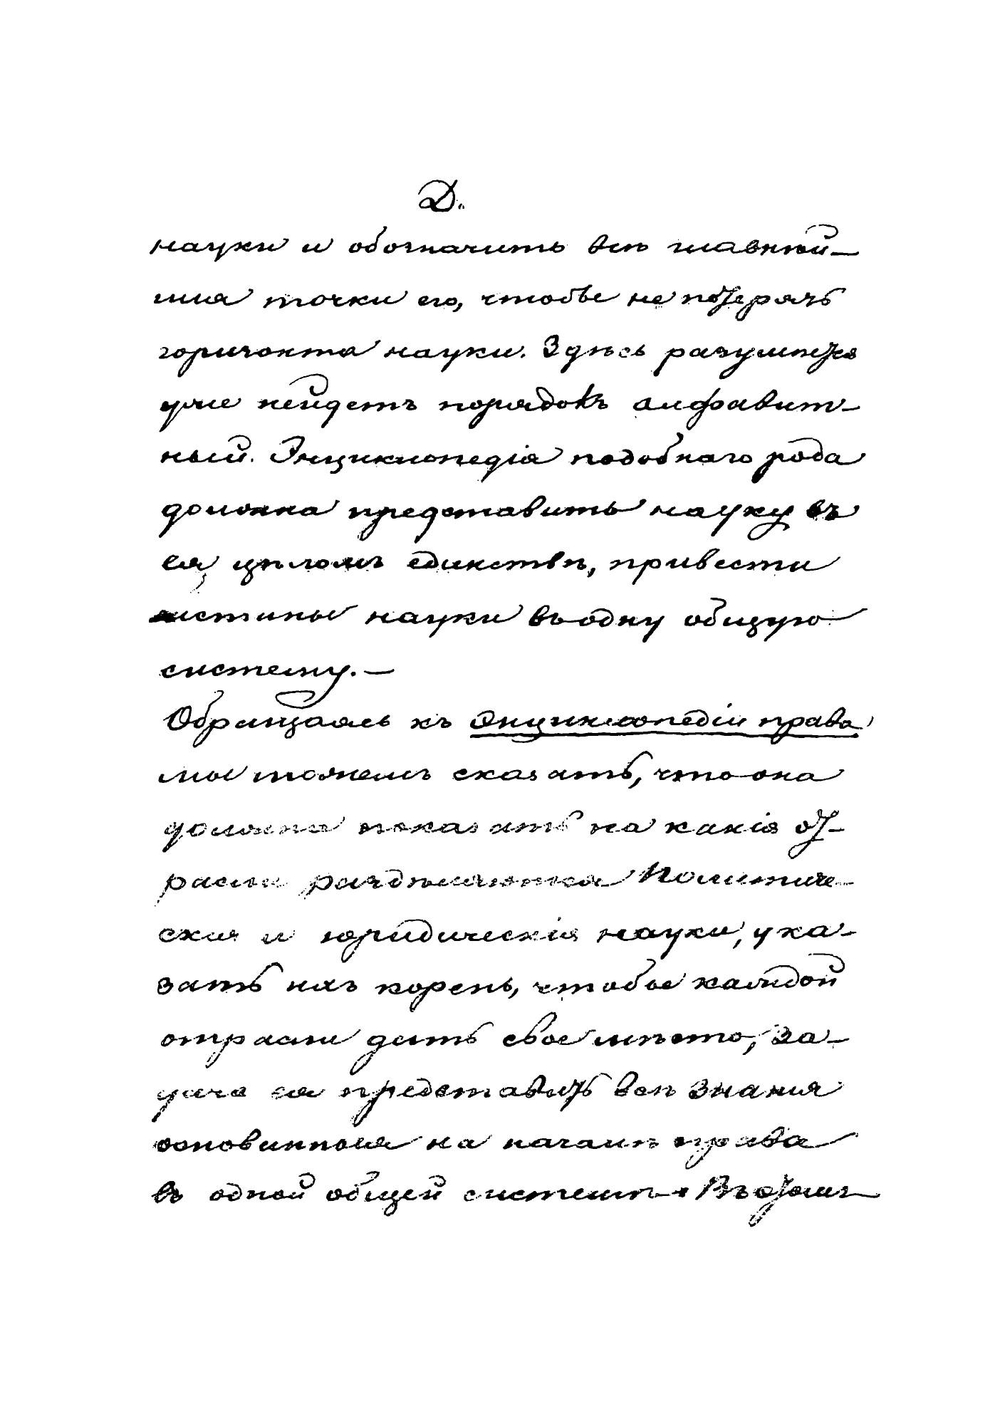 Д.
науки и обозначить всѣ главнѣй-
шія точки его, чтобы не потерять
горизонта науки. Здѣсь разумѣется
уже нейдетъ порядокъ алфавит-
ный. Энциклопедія подобнаго рода
должна представить науку въ
ея цѣломъ единствѣ, привести
истины науки въ одну общую
систему. —
Обращаясь къ Энциклопедіи права
мы можемъ сказать, что она
должна показать на какія от-
расли раздѣляются Политиче-
скія и юридическія науки, ука-
зать ихъ корень, чтобы каждой
отрасли дать свое мѣсто, за-
дача ея представить всѣ знания
основанныя на началѣ права
въ одной общей системѣ. Въ этомъ